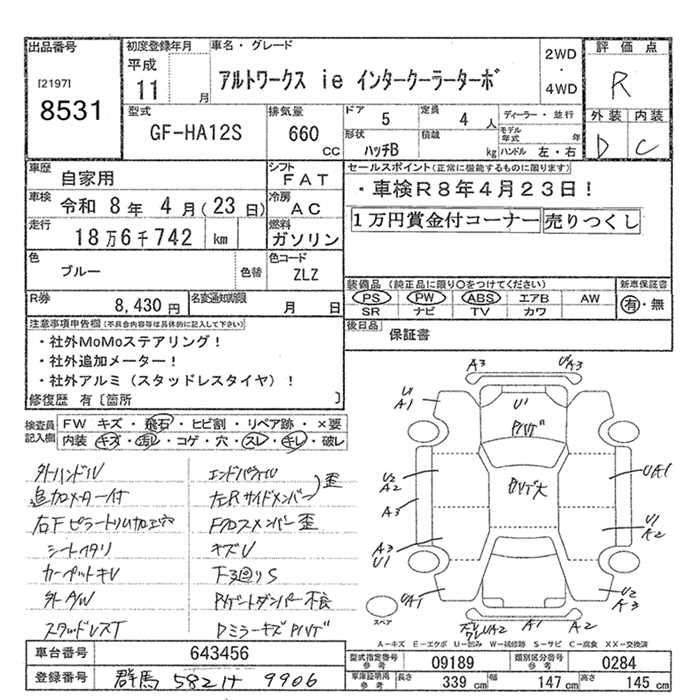 出品番号
[2197]
8531
初度登録年月
平成
11 月
車名・グレード
アルトワークス ie インタークーラーターボ
2WD
・
4WD
評価点
R
外装 内装
D C
型式
GF-HA12S
排気量
660 cc
ドア 5
定員 4 人
形状 ハッチB
積載 kg
ディーラー・並行
モデル年式 年
ハンドル 左・右
車歴
自家用
シフト
FAT
車検
令和 8年 4月(23日)
冷房
AC
走行
18万6千742 km
燃料
ガソリン
色
ブルー
色替
色コード
ZLZ
R券
8,430円
名変通知期限
月 日
セールスポイント(正常に機能するものに限ります)
・車検R8年4月23日!
1万円賞金付コーナー 売りつくし
装備品(純正品に限り○をつけてください)
PS PW ABS エアB AW
SR ナビ TV カワ
新車保証書
有・無
後日品
保証書
注意事項申告欄(不具合内容等は具体的に記入して下さい)
・社外MoMoステアリング!
・社外追加メーター!
・社外アルミ(スタッドレスタイヤ)!
修復歴 有〔箇所 〕
検査員記入欄
FW キズ・飛石・ヒビ割・リペア跡・×要
内装 キズ・汚レ・コゲ・穴・スレ・キレ・破レ
外ハンドル
追加メーター付
右Fピラートリム加工穴
シートヘタリ
カーペットキレ
外A/W
スタッドレスT
エンドパネル
左右Rサイドメンバー
歪
Fクロスメンバー歪
キズU
下廻りS
Rゲートダンパー不良
DミラーキズPハゲ
A3
U'A3
U1
A1
U'
Pハゲ
U2
A2
A3
U1
A3
UA1
U1
A2
UA1
U2
A3
A1
A2
スペア
A=キズ E=エクボ U=凹み W=補修跡 S=サビ C=腐食 XX=交換済
車台番号
643456
登録番号
群馬 582 ナ 9906
型式指定番号
参考
09189
類別区分番号
参考
0284
車庫証明用
参考
長さ 339 cm
幅 147 cm
高さ 145 cm